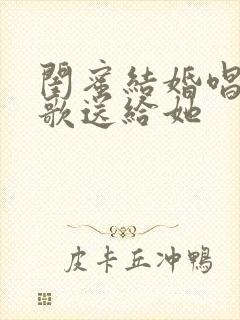 閨蜜結婚唱
歌送給她
皮卡丘沖鴨